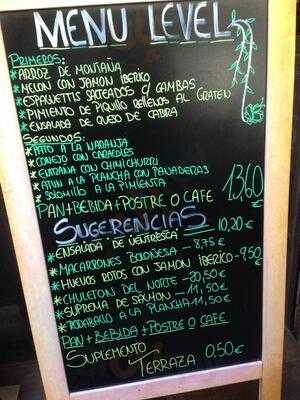 MENU LEVEL
PRIMEROS:
*ARROZ DE MONTAÑA
*MELON CON JAMON IBERICO
*ESPAGUETTIS SALTEADOS C/ GAMBAS
*PIMIENTO DE PIQUILLO RELLENOS AL GRATEN
*ENSALADA DE QUESO DE CABRA
SEGUNDOS:
*PATO A LA NARANJA
*CONEJO CON CARACOLES
*ENTRAÑA CON CHIMICHURRI
*ATUN A LA PLANCHA CON PANADERAS
*SOLOMILLO A LA PIMIENTA
PAN+BEBIDA+POSTRE O CAFE 13'60 €
SUGERENCIAS
*ENSALADA DE VENTRESCA - 10,20 €
*MACARRONES BOLOÑESA - 8,75 €
*HUEVOS ROTOS CON JAMON IBERICO - 9,50 €
*CHULETON DEL NORTE - 20,50 €
*SUPREMA DE SALMON - 11,50 €
*RODABALLO A LA PLANCHA - 11,50 €
PAN + BEBIDA + POSTRE O CAFE
SUPLEMENTO
TERRAZA 0,50 €